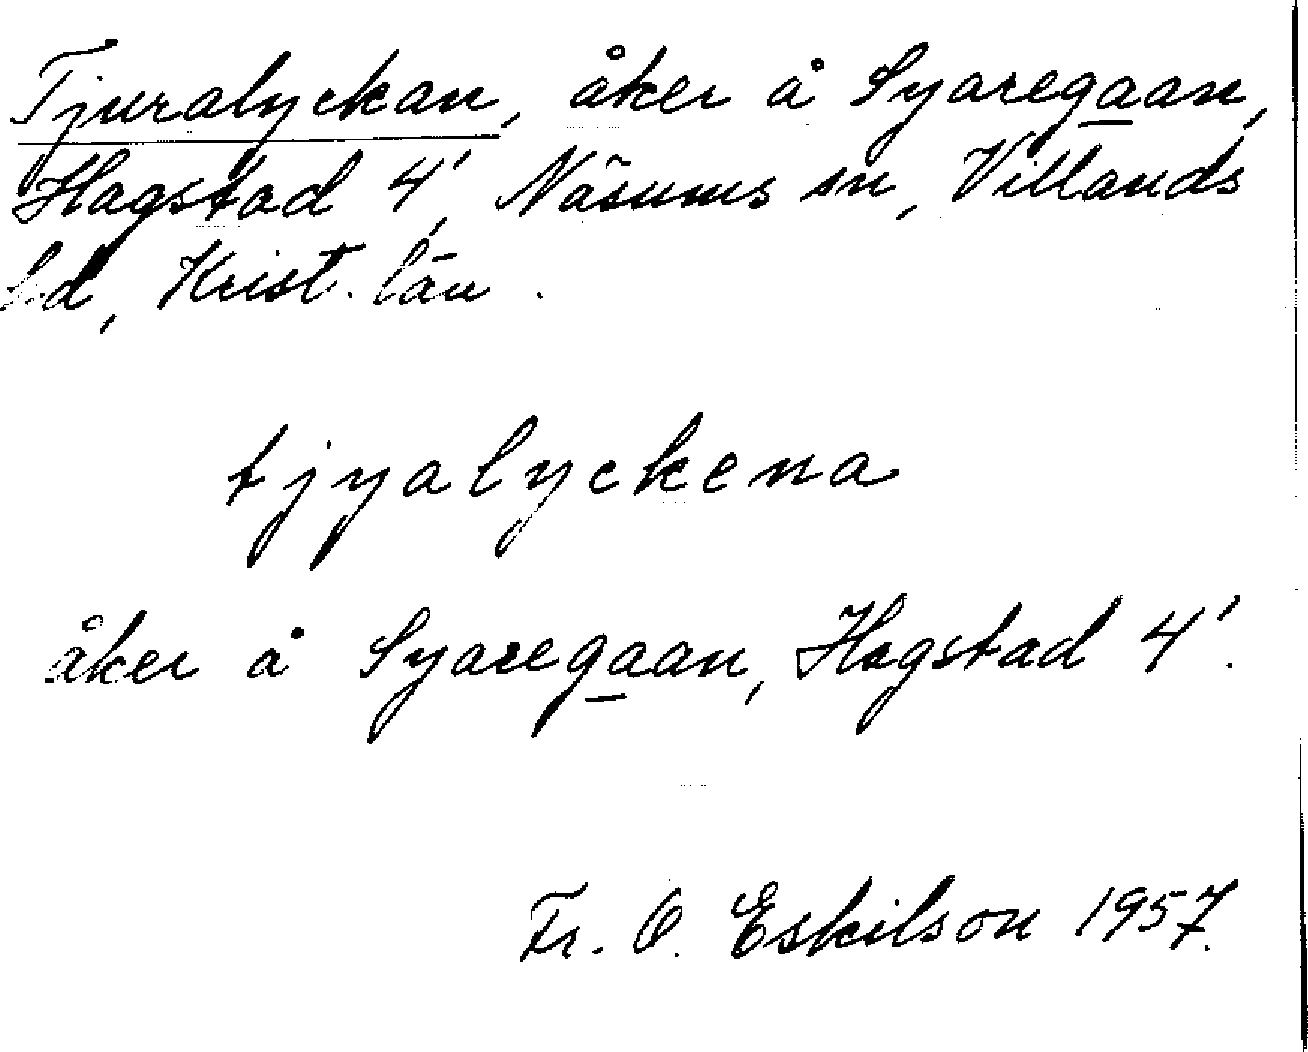 Tjuralyckan, åker å Syaregaan,
Hagstad 4', Näsums sn, Villands
hd, Krist. län.
tjyalyckena
åker å Syaregaan, Hagstad 4'.
Fr. O. Eskilson 1957.